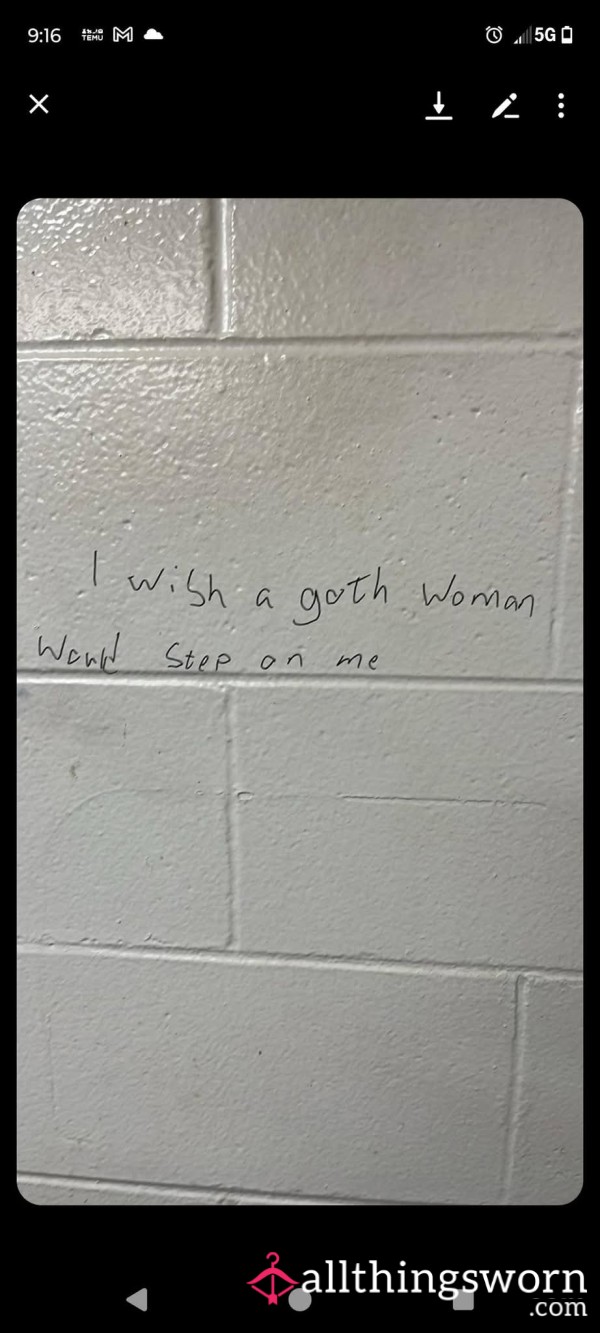 9:16
TEMU
5G
I wish a goth woman
Would step on me
allthingsworn
.com